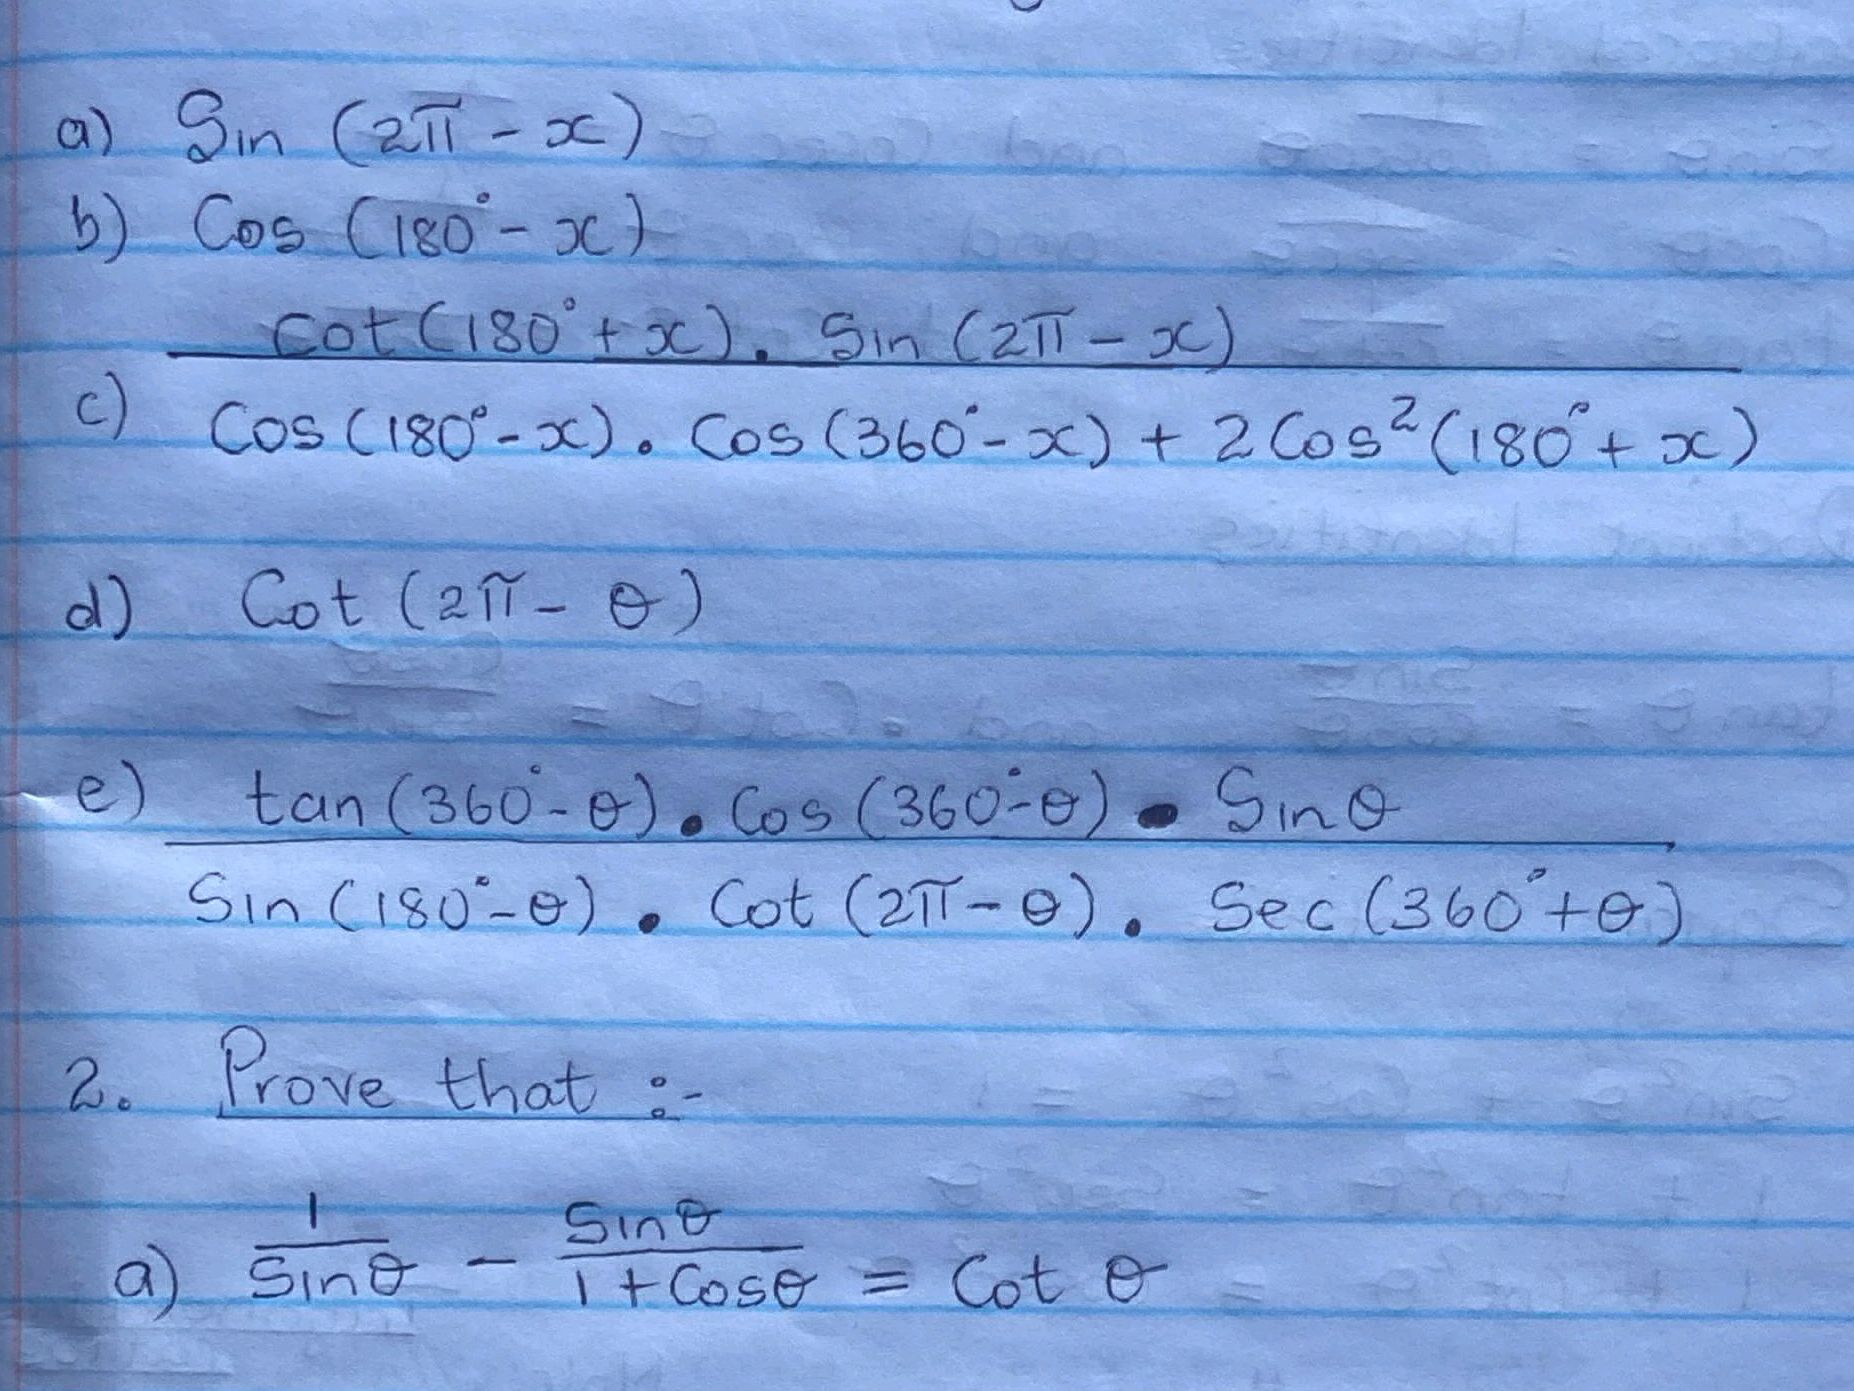 a) Sin (2π - x)
b) Cos (180° - x)
c) cot(180° + x). Sin (2π - x) / Cos (180° - x). Cos (360° - x) + 2 Cos² (180° + x)
d) Cot (2π - θ)
e) tan (360° - θ). Cos (360° - θ) . Sin θ / Sin (180° - θ) . Cot (2π - θ). Sec (360° + θ)
2. Prove that :-
a) 1 / Sin θ - Sin θ / 1 + Cos θ = Cot θ